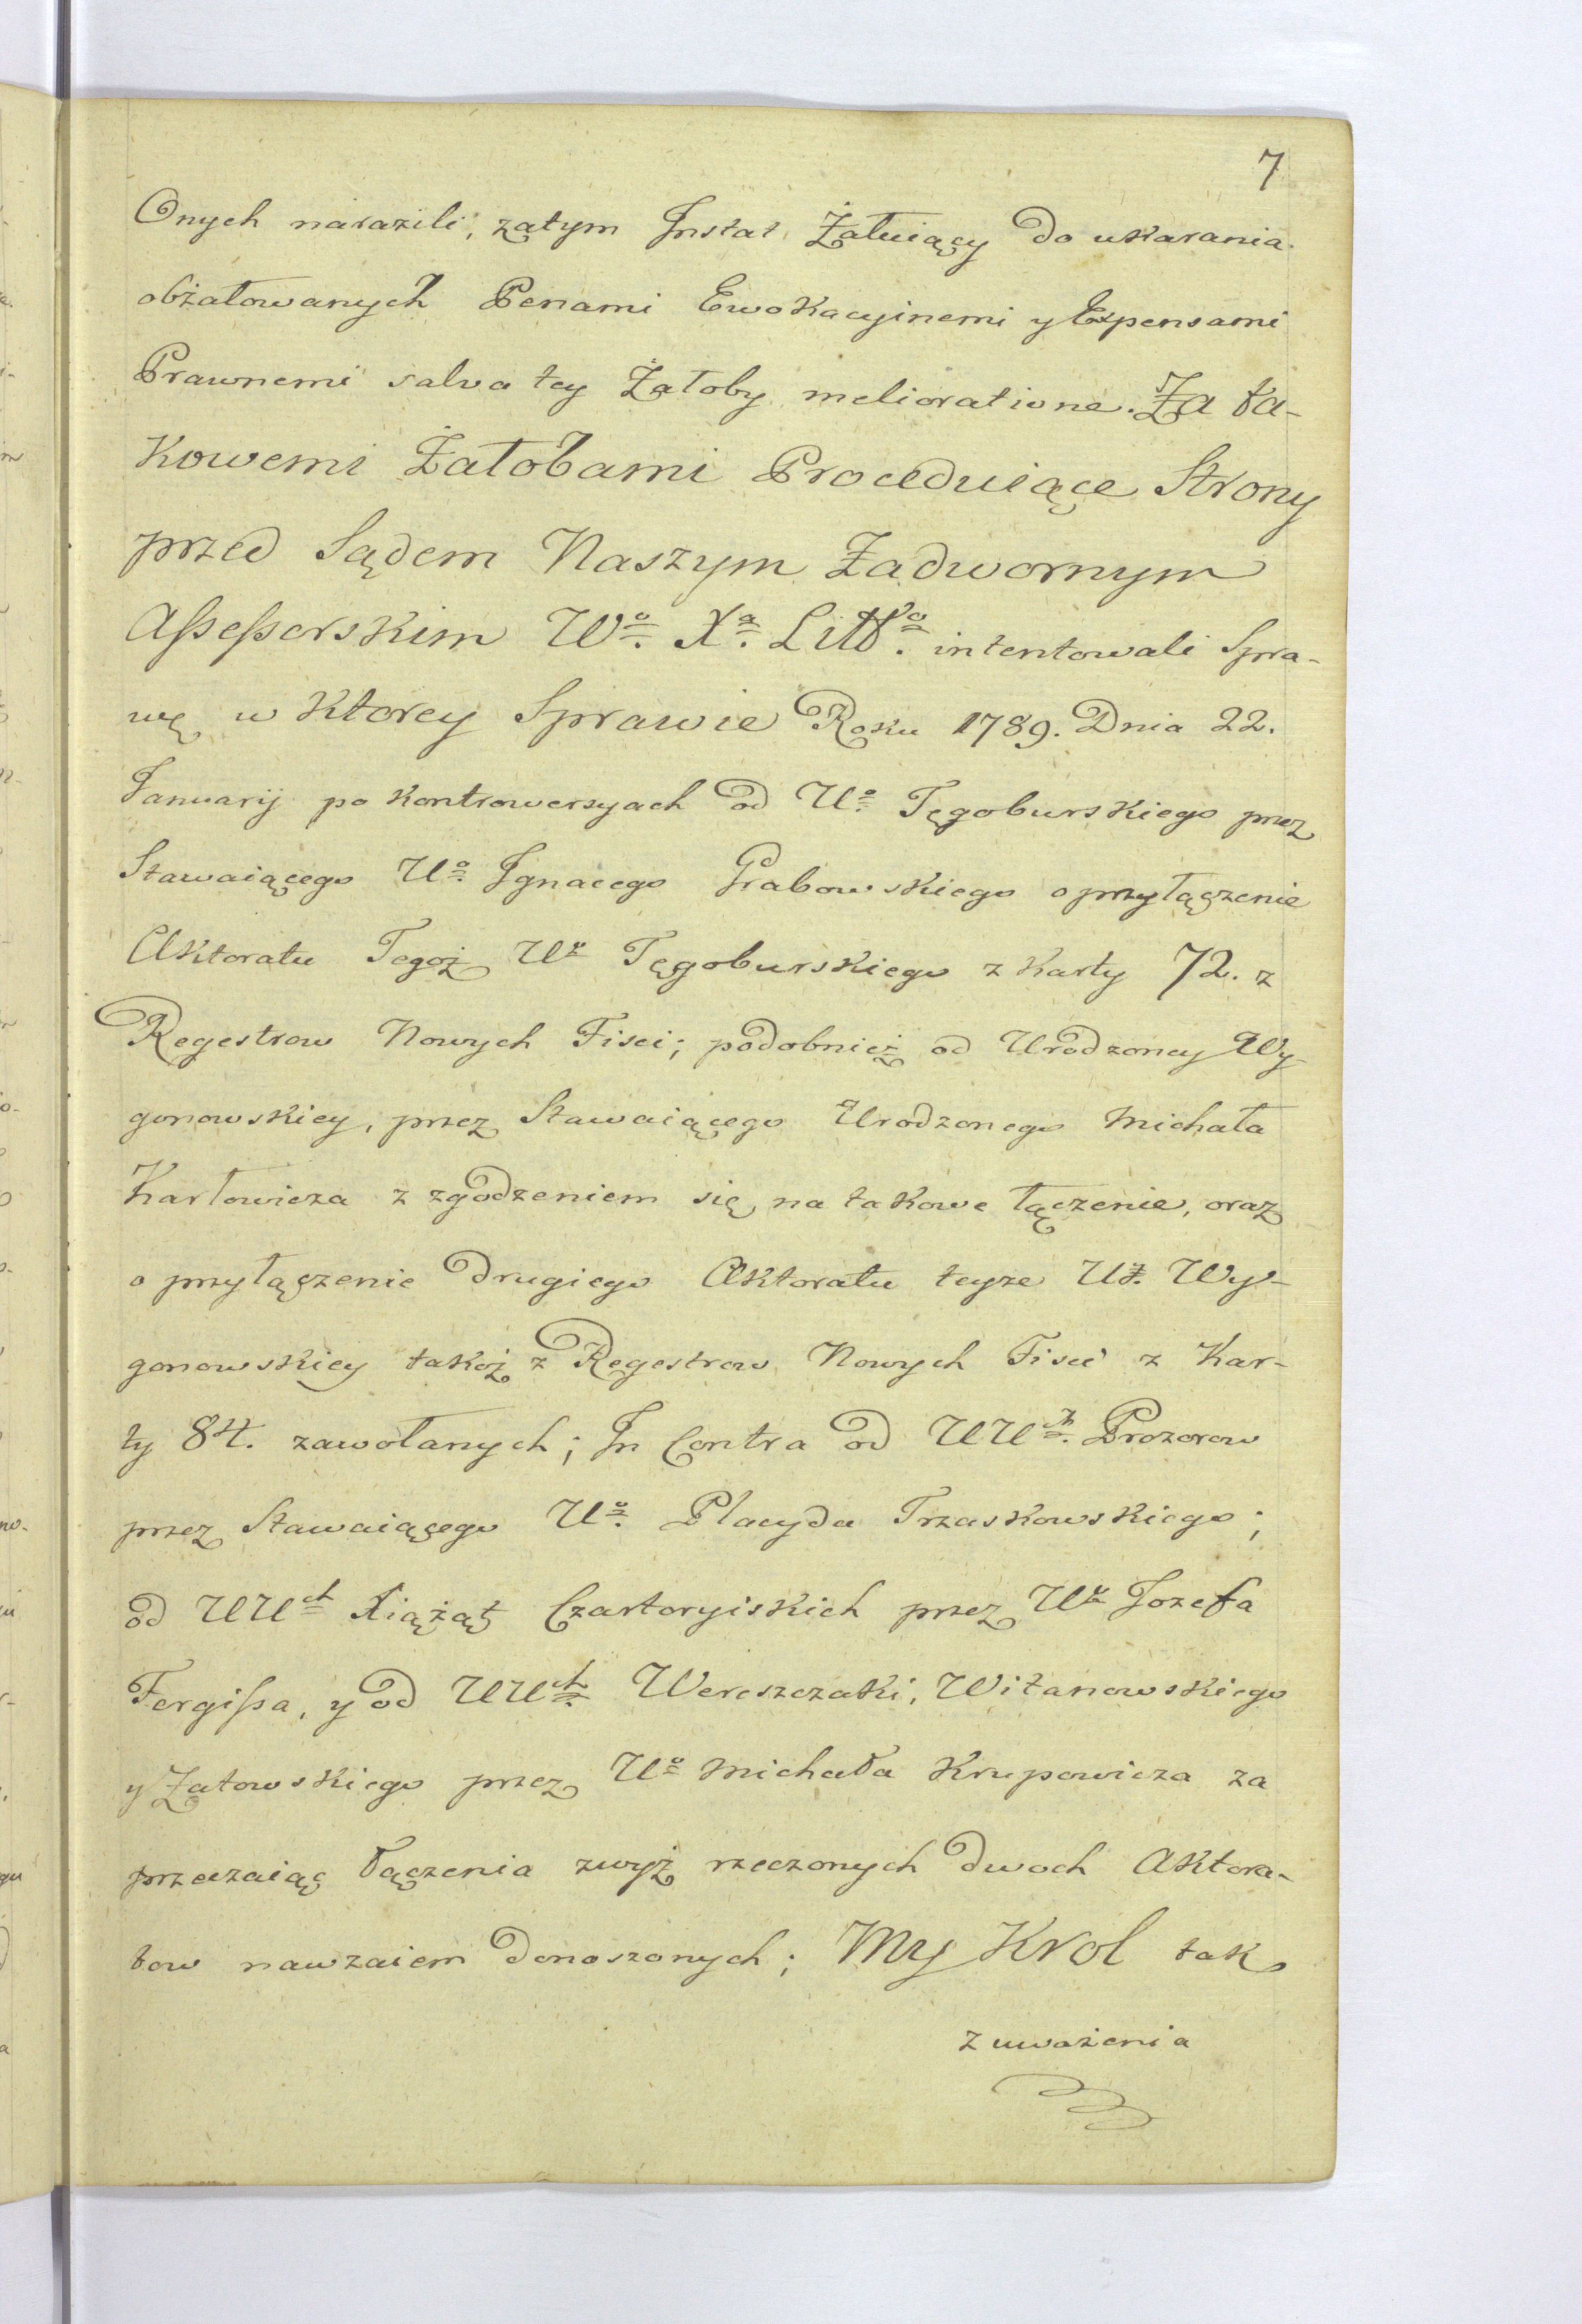 7
Onych narazili, zatym Instat Żałuiący do ukarania
obżałowanych Penami Ewokacyinemi y Expensami
Prawnemi salva tey Żałoby melioratione. Za ta-
kowemi Żałobami Proceduiące Strony
przed Sądem Naszym Zadwornym
Aſseſsorskim Wo. Xa. Litto. intentowali Spra-
wę w ktorey Sprawie Roku 1789. Dnia 22.
Januarij po kontrowersyach od Uo. Tęgoburskiego przez
Stawaiącego Uo. Ignacego Grabowskiego o przyłączenie
Aktoratu Tegoż Uo Tęgoburskiego z karty 72. z
Regestrow Nowych Fisci; podobnież od Urodzoney Wy-
gonowskiey, przez Stawaiącego Urodzonego Michała
Karłowicza z zgodzeniem się na takowe łączenie, oraz
o przyłączenie drugiego Aktoratu teyze Uż. Wy-
gonowskiey takoż z Regestrow Nowych Fisci z Kar-
ty 84. zawołanych; In Contra od UUch. Prozorow
przez Stawaiącego Uo. Placyda Trzaskowskiego;
od UUch Xiążąt Czartoryiskich przez Uo Jozefa
Fergiſsa, y od UUch. Wereszczaki, Witanowskiego
y Załowskiego przez Uo Michała Krupowicza za
przeczaiąc łączenia zwyż rzeczonych dwoch Aktora-
tow nawzaiem donoszonych; My Krol tak
z uważenia